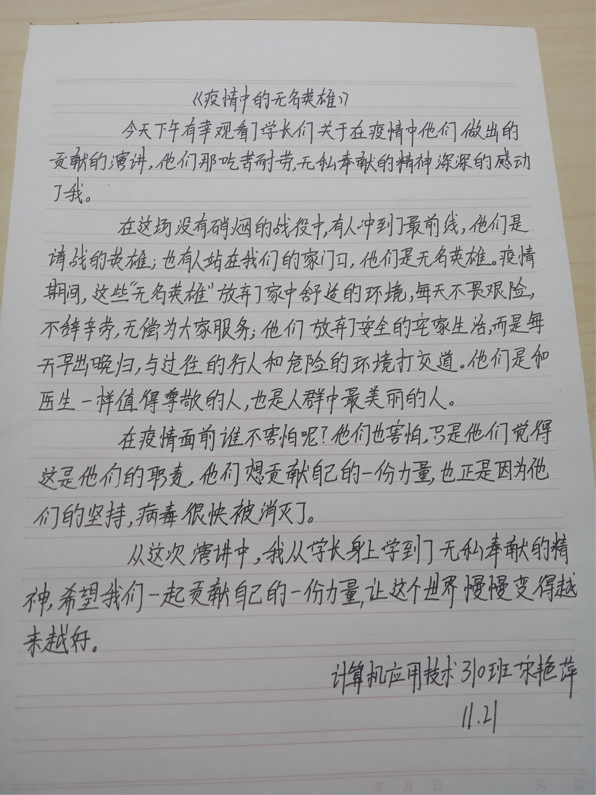 《疫情中的无名英雄》
今天下午有幸观看了学长们关于在疫情中他们做出的
贡献的演讲，他们那吃苦耐劳，无私奉献的精神深深的感动
了我。
在这场没有硝烟的战役中，有人冲到了最前线，他们是
请战的英雄；也有人站在我们的家门口，他们是无名英雄。疫情
期间，这些“无名英雄”放弃了家中舒适的环境，每天不畏艰险，
不辞辛劳，无偿为大家服务；他们放弃了安全的宅家生活，而是每
天早出晚归，与过往的行人和危险的环境打交道。他们是和
医生一样值得尊敬的人，也是人群中最美丽的人。
在疫情面前谁不害怕呢？他们也害怕，只是他们觉得
这是他们的职责，他们想贡献自己的一份力量，也正是因为他
们的坚持，病毒很快被消灭了。
从这次演讲中，我从学长身上学到了无私奉献的精
神，希望我们一起贡献自己的一份力量，让这个世界慢慢变得越
来越好。
计算机应用技术310班宋艳萍
11.21